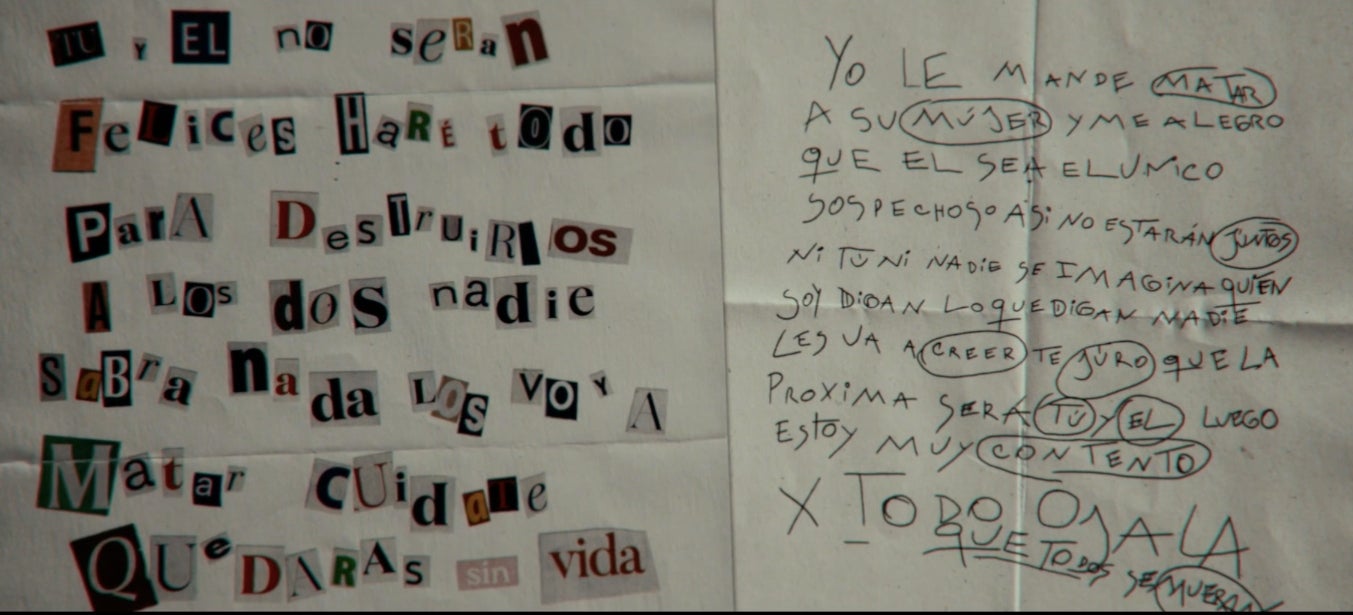 TU Y EL no seran
Felices HaRÉ todo
ParA DesTruiRlos
A Los dos nadie
SaBra nada Los voy A
Matar cuidate
QUeDARAs sin vida
Yo LE MANDE MATAR
A SU MUJER Y ME ALEGRO
QUE EL SEA EL UNICO
SOSPECHOSO ASi NO ESTARÁN JUNTOS
Ni TÚ Ni NADiE SE IMAGiNA QUIÉN
SOY DIGAN LO QUE DIGAN NADiE
LES VA A CREER TE JURO QUE LA
PROXiMA SERA TÚ Y EL LUEGO
ESToY MUY CONTENTO
X TODO OJALA
QUE TODOS SE MUERAN